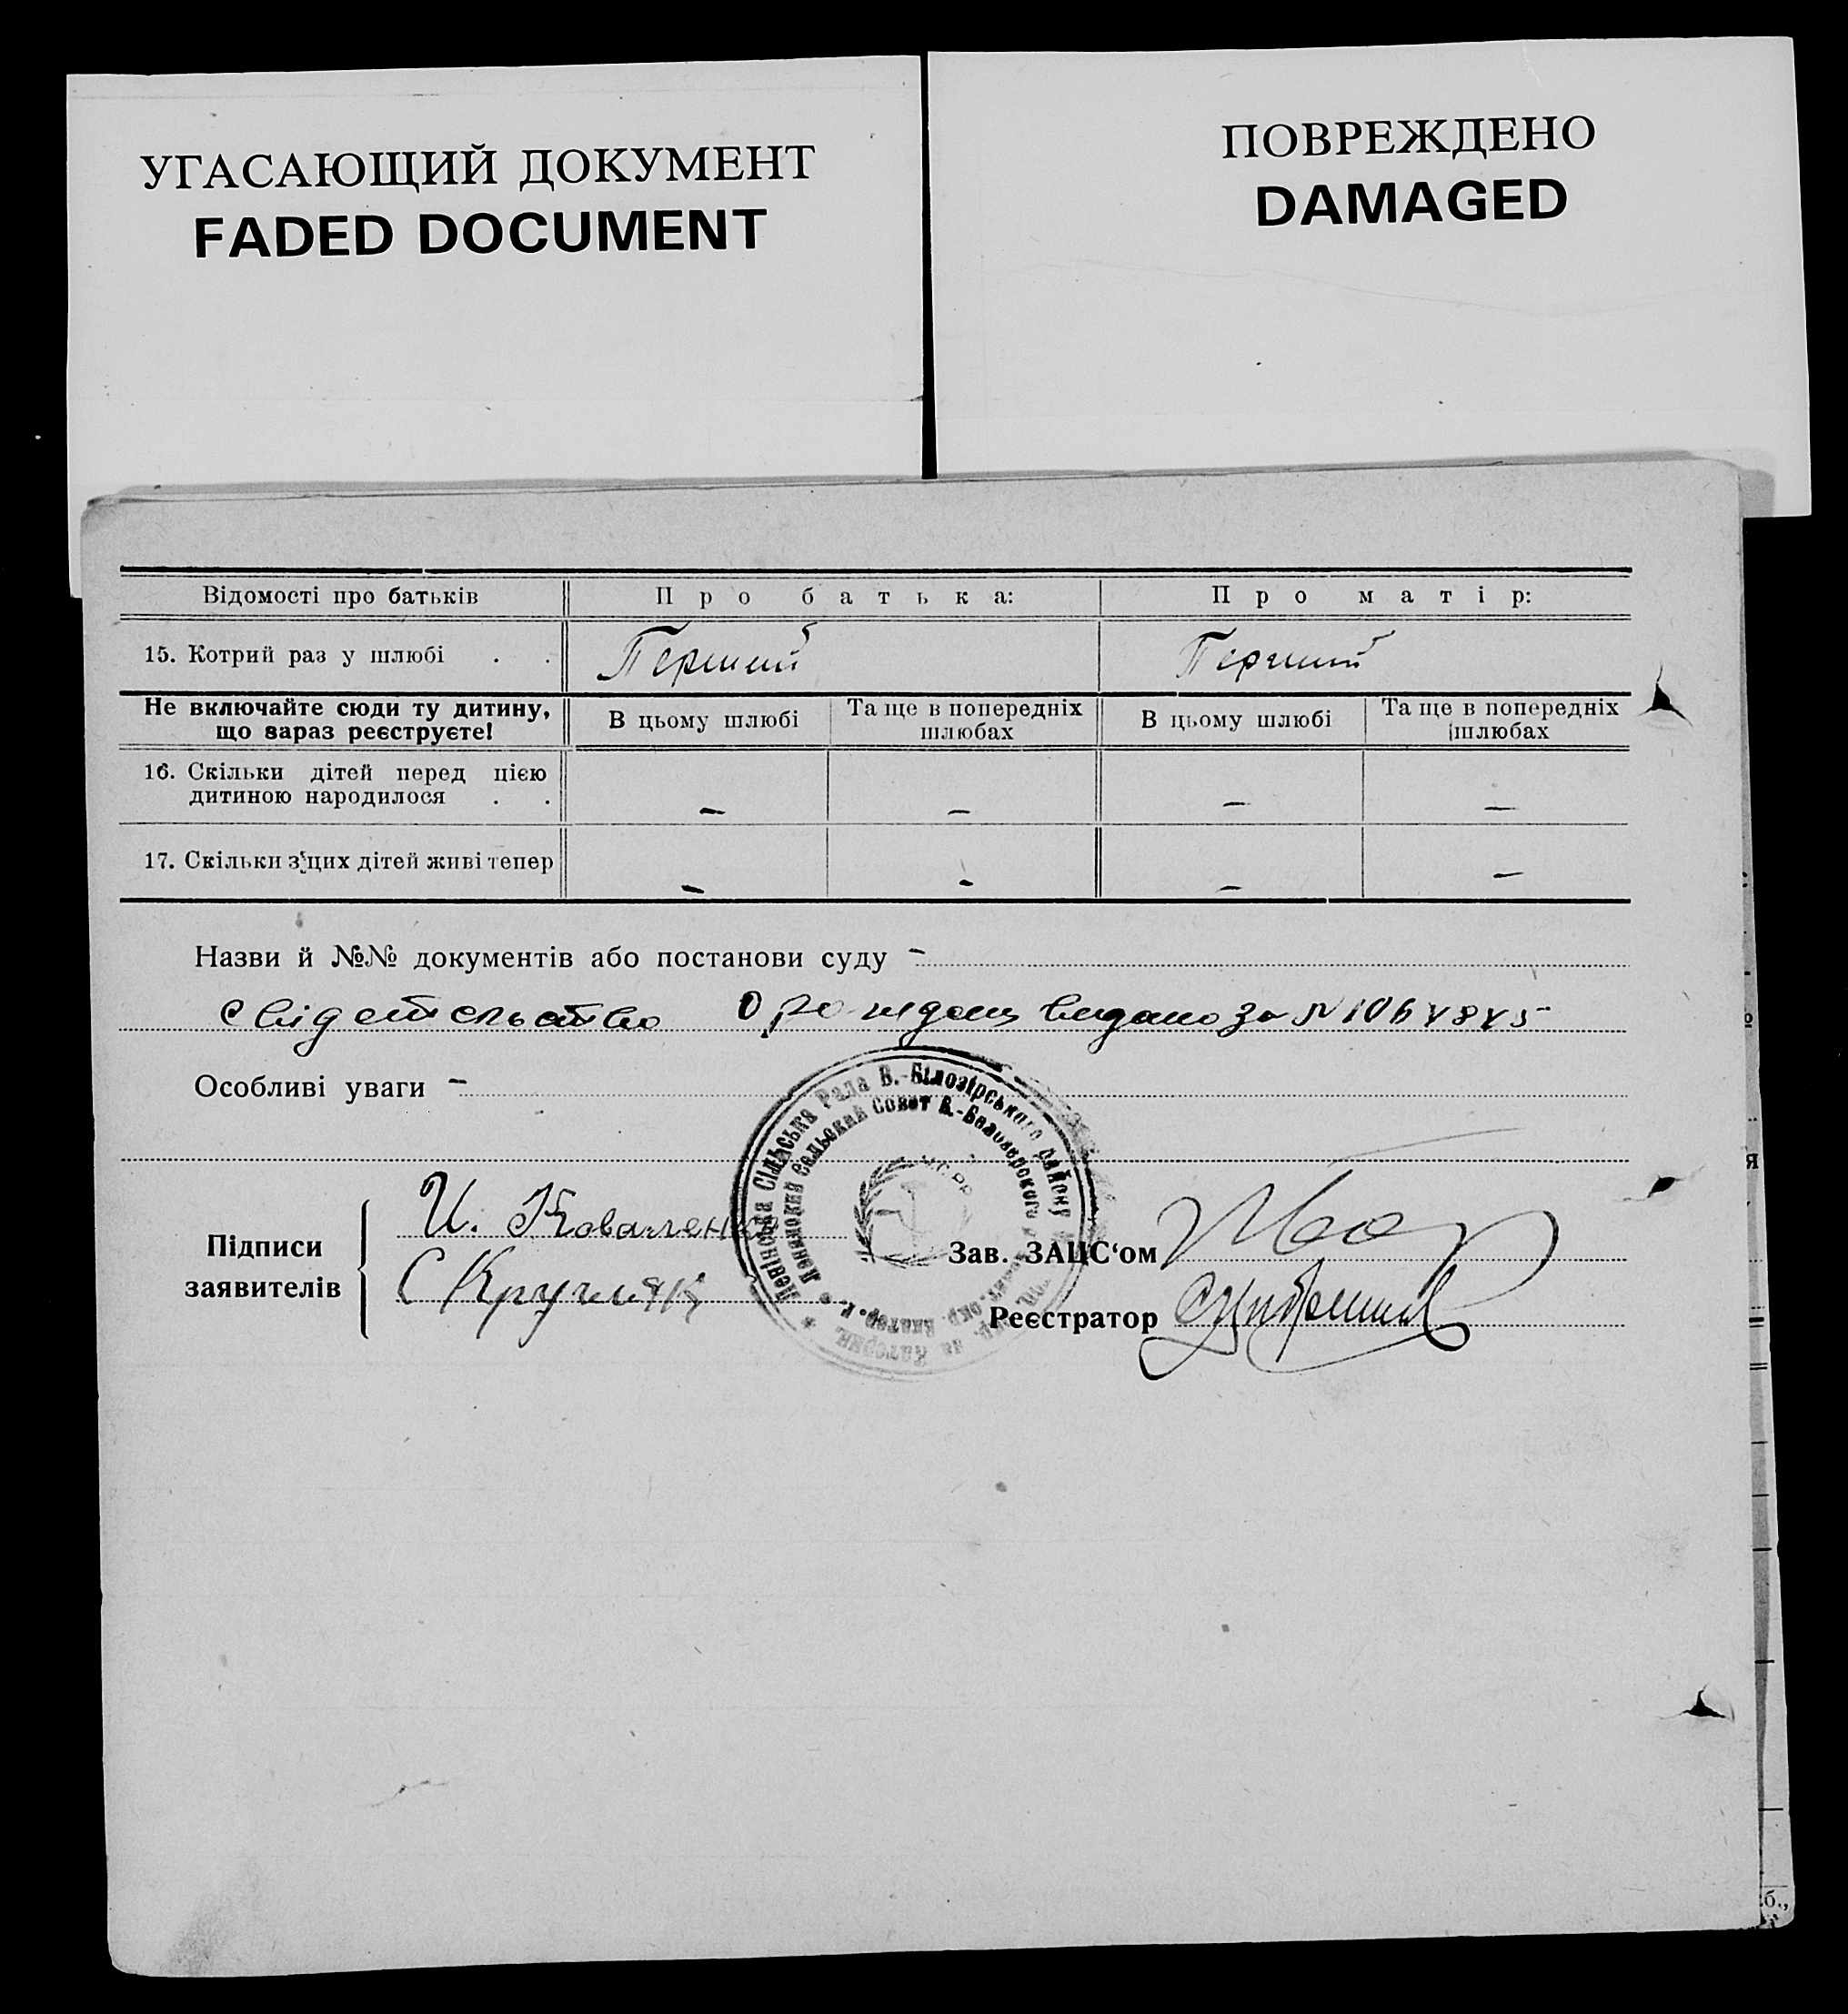 УГАСАЮЩИЙ ДОКУМЕНТ
FADED DOCUMENT
ПОВРЕЖДЕНО
DAMAGED
Відомості про батьків Про батька: Про матір:
15. Котрий раз у шлюбі . . Перший Перший
Не включайте сюди ту дитину,
що зараз реєструєте!
В цьому шлюбі
Та ще в попередніх
шлюбах
В цьому шлюбі
Та ще в попередніх
шлюбах
16. Скільки дітей перед цією
дитиною народилося . . — — — —
17. Скільки з цих дітей живі тепер — - — —
Назви й №№ документів або постанови суду –
свідетельство о рождении видано за N
Особливі уваги –
Сільська Рада В.-Білозірського району
Сельский Совет В.-Белозерского
Підписи
заявителів
И. Коваленко
С Кругляк
Зав. ЗАЦС‘ом
Реєстратор